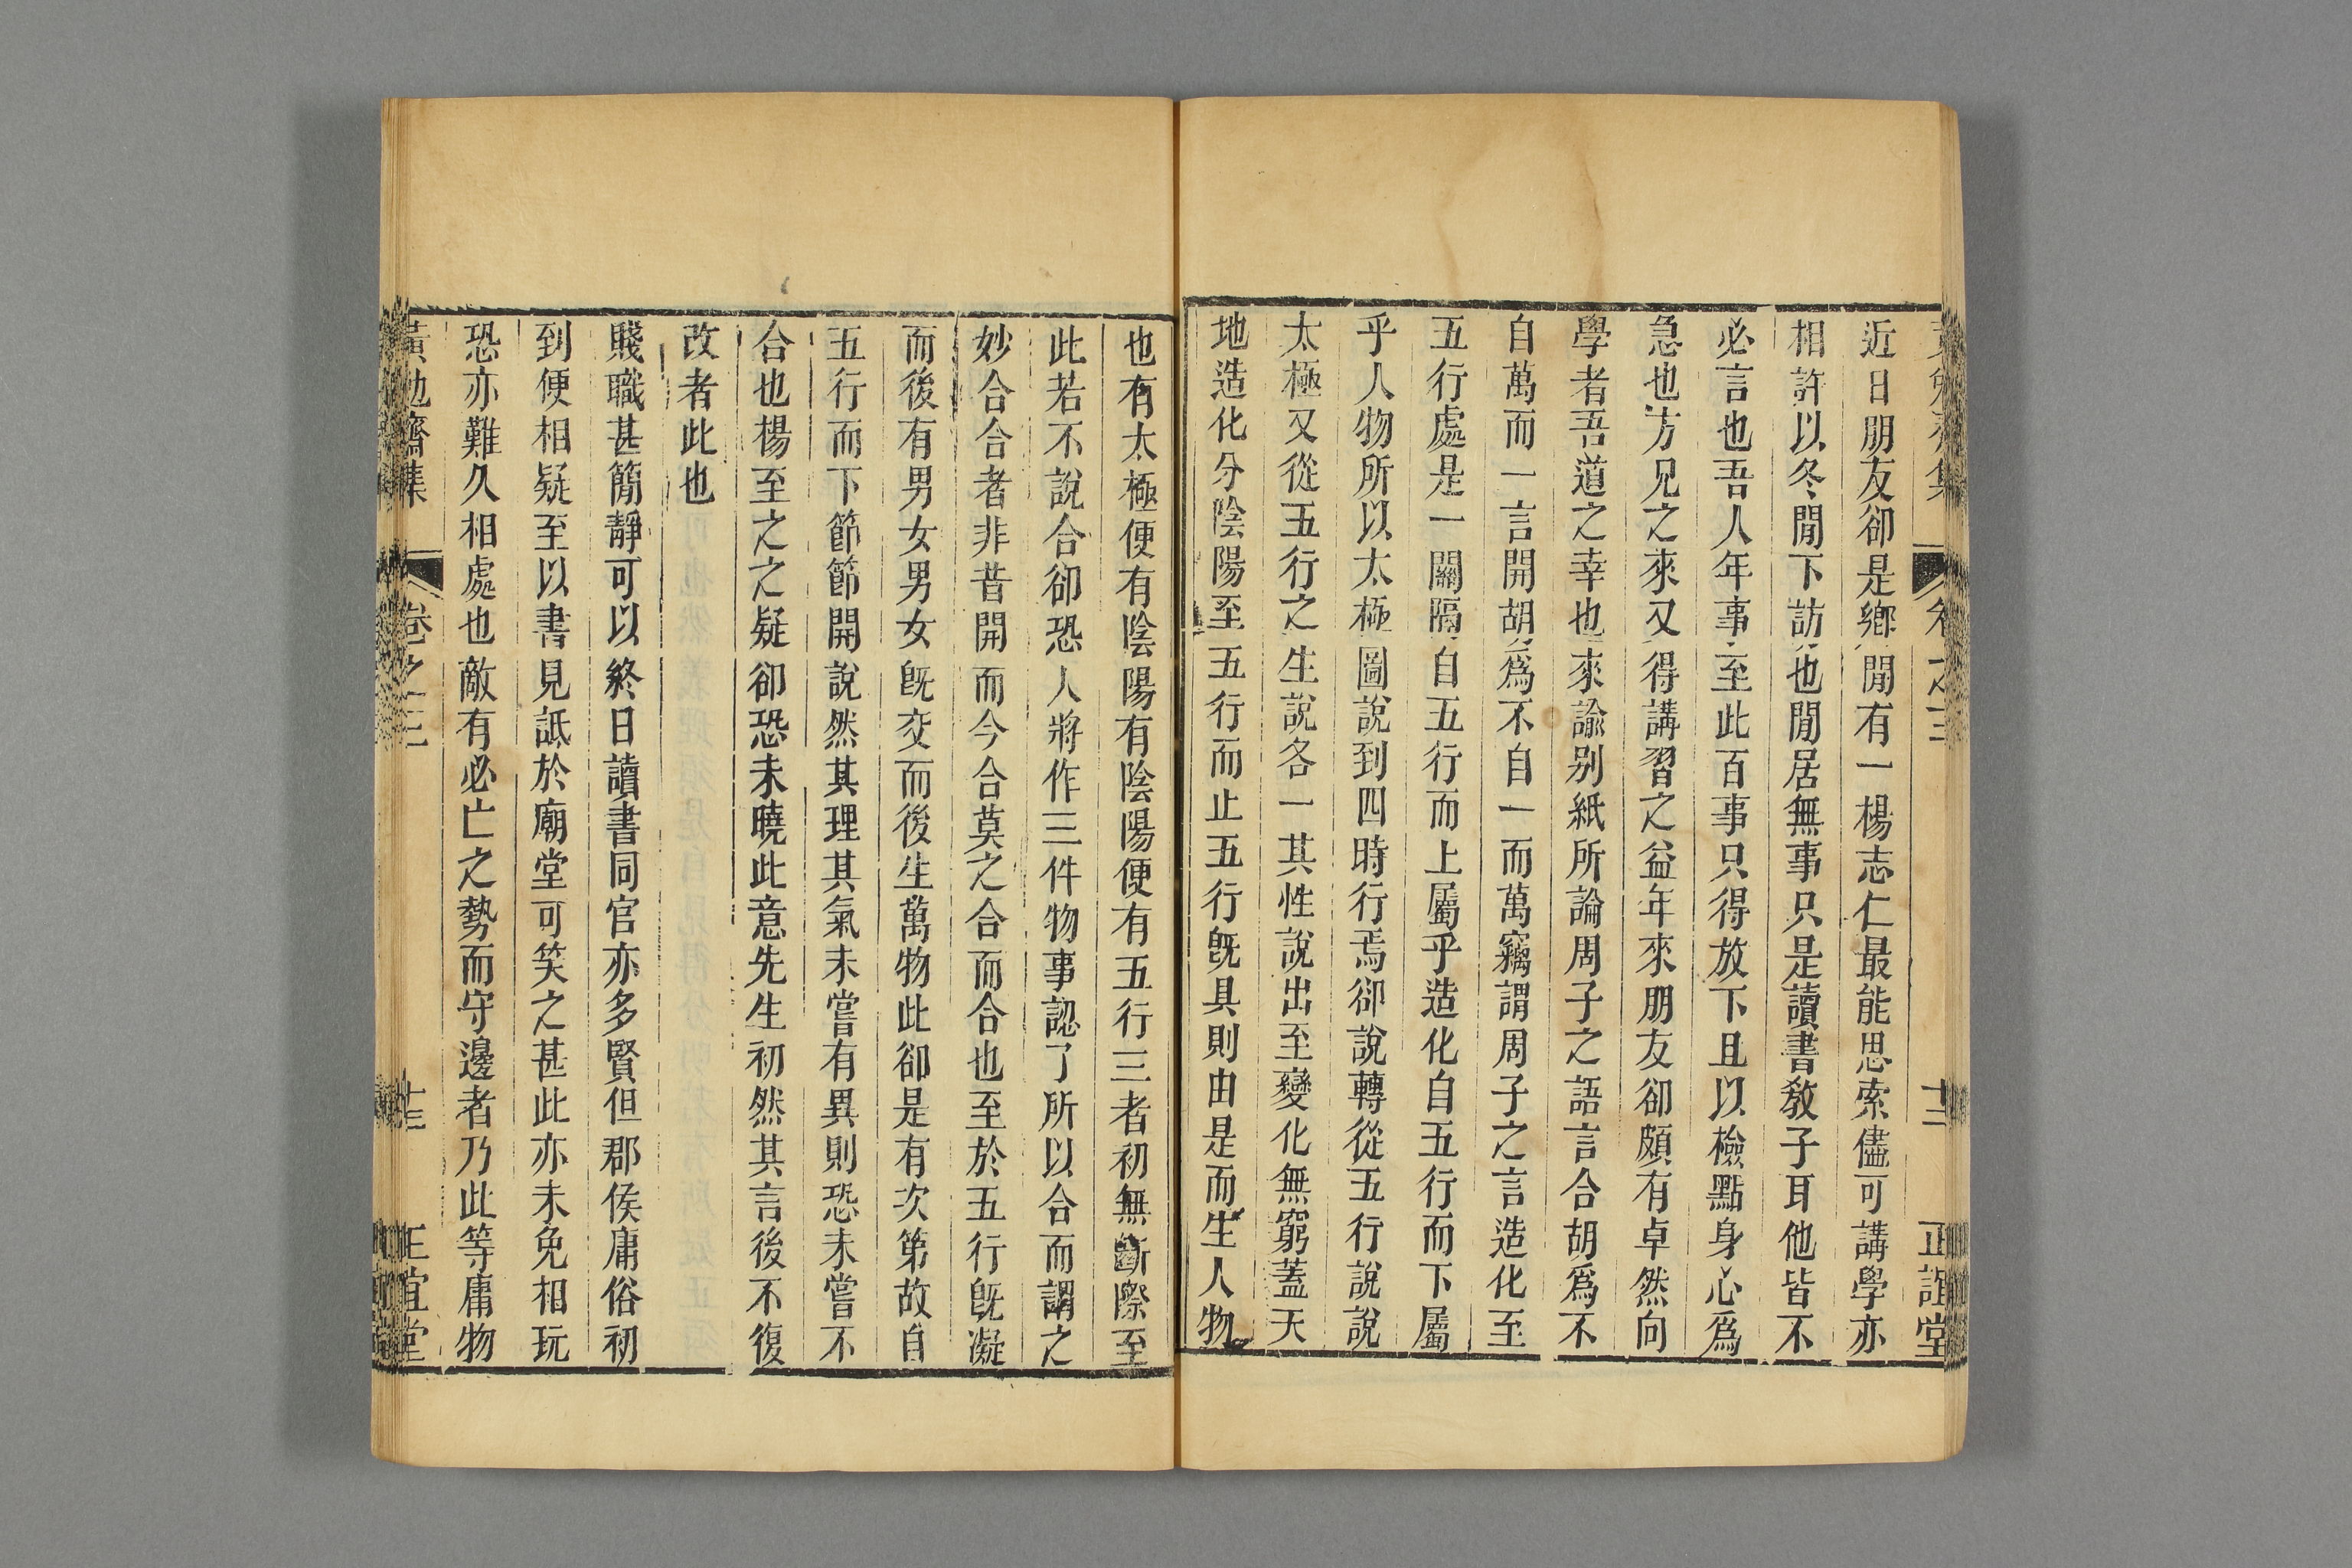 黃勉齋集 卷之三 十二 正誼堂
近日朋友卻是鄉閒有一楊志仁最能思索儘可講學亦
相許以冬閒下訪也閒居無事只是讀書教子耳他皆不
必言也吾人年事至此百事只得放下且以檢點身心爲
急也方見之來又得講習之益年來朋友卻頗有卓然向
學者吾道之幸也來諭别紙所論周子之語言合胡爲不
自萬而一言開胡爲不自一而萬竊謂周子之言造化至
五行處是一關隔自五行而上屬乎造化自五行而下屬
乎人物所以太極圖說到四時行焉卻說轉從五行說說
太極又從五行之生說各一其性說出至變化無窮蓋天
地造化分陰陽至五行而止五行旣具則由是而生人物
也有太極便有陰陽有陰陽便有五行三者初無斷際至
此若不說合卻恐人將作三件物事認了所以合而謂之
妙合合者非昔開而今合莫之合而合也至於五行旣凝
而後有男女男女旣交而後生萬物此卻是有次第故自
五行而下節節開說然其理其氣未嘗有異則恐未嘗不
合也楊至之之疑卻恐未曉此意先生初然其言後不復
改者此也
賤職甚簡靜可以終日讀書同官亦多賢但郡侯庸俗初
到便相疑至以書見詆於廟堂可笑之甚此亦未免相玩
恐亦難久相處也敵有必亡之勢而守邊者乃此等庸物
黃勉齋集 卷之三 十三 正誼堂